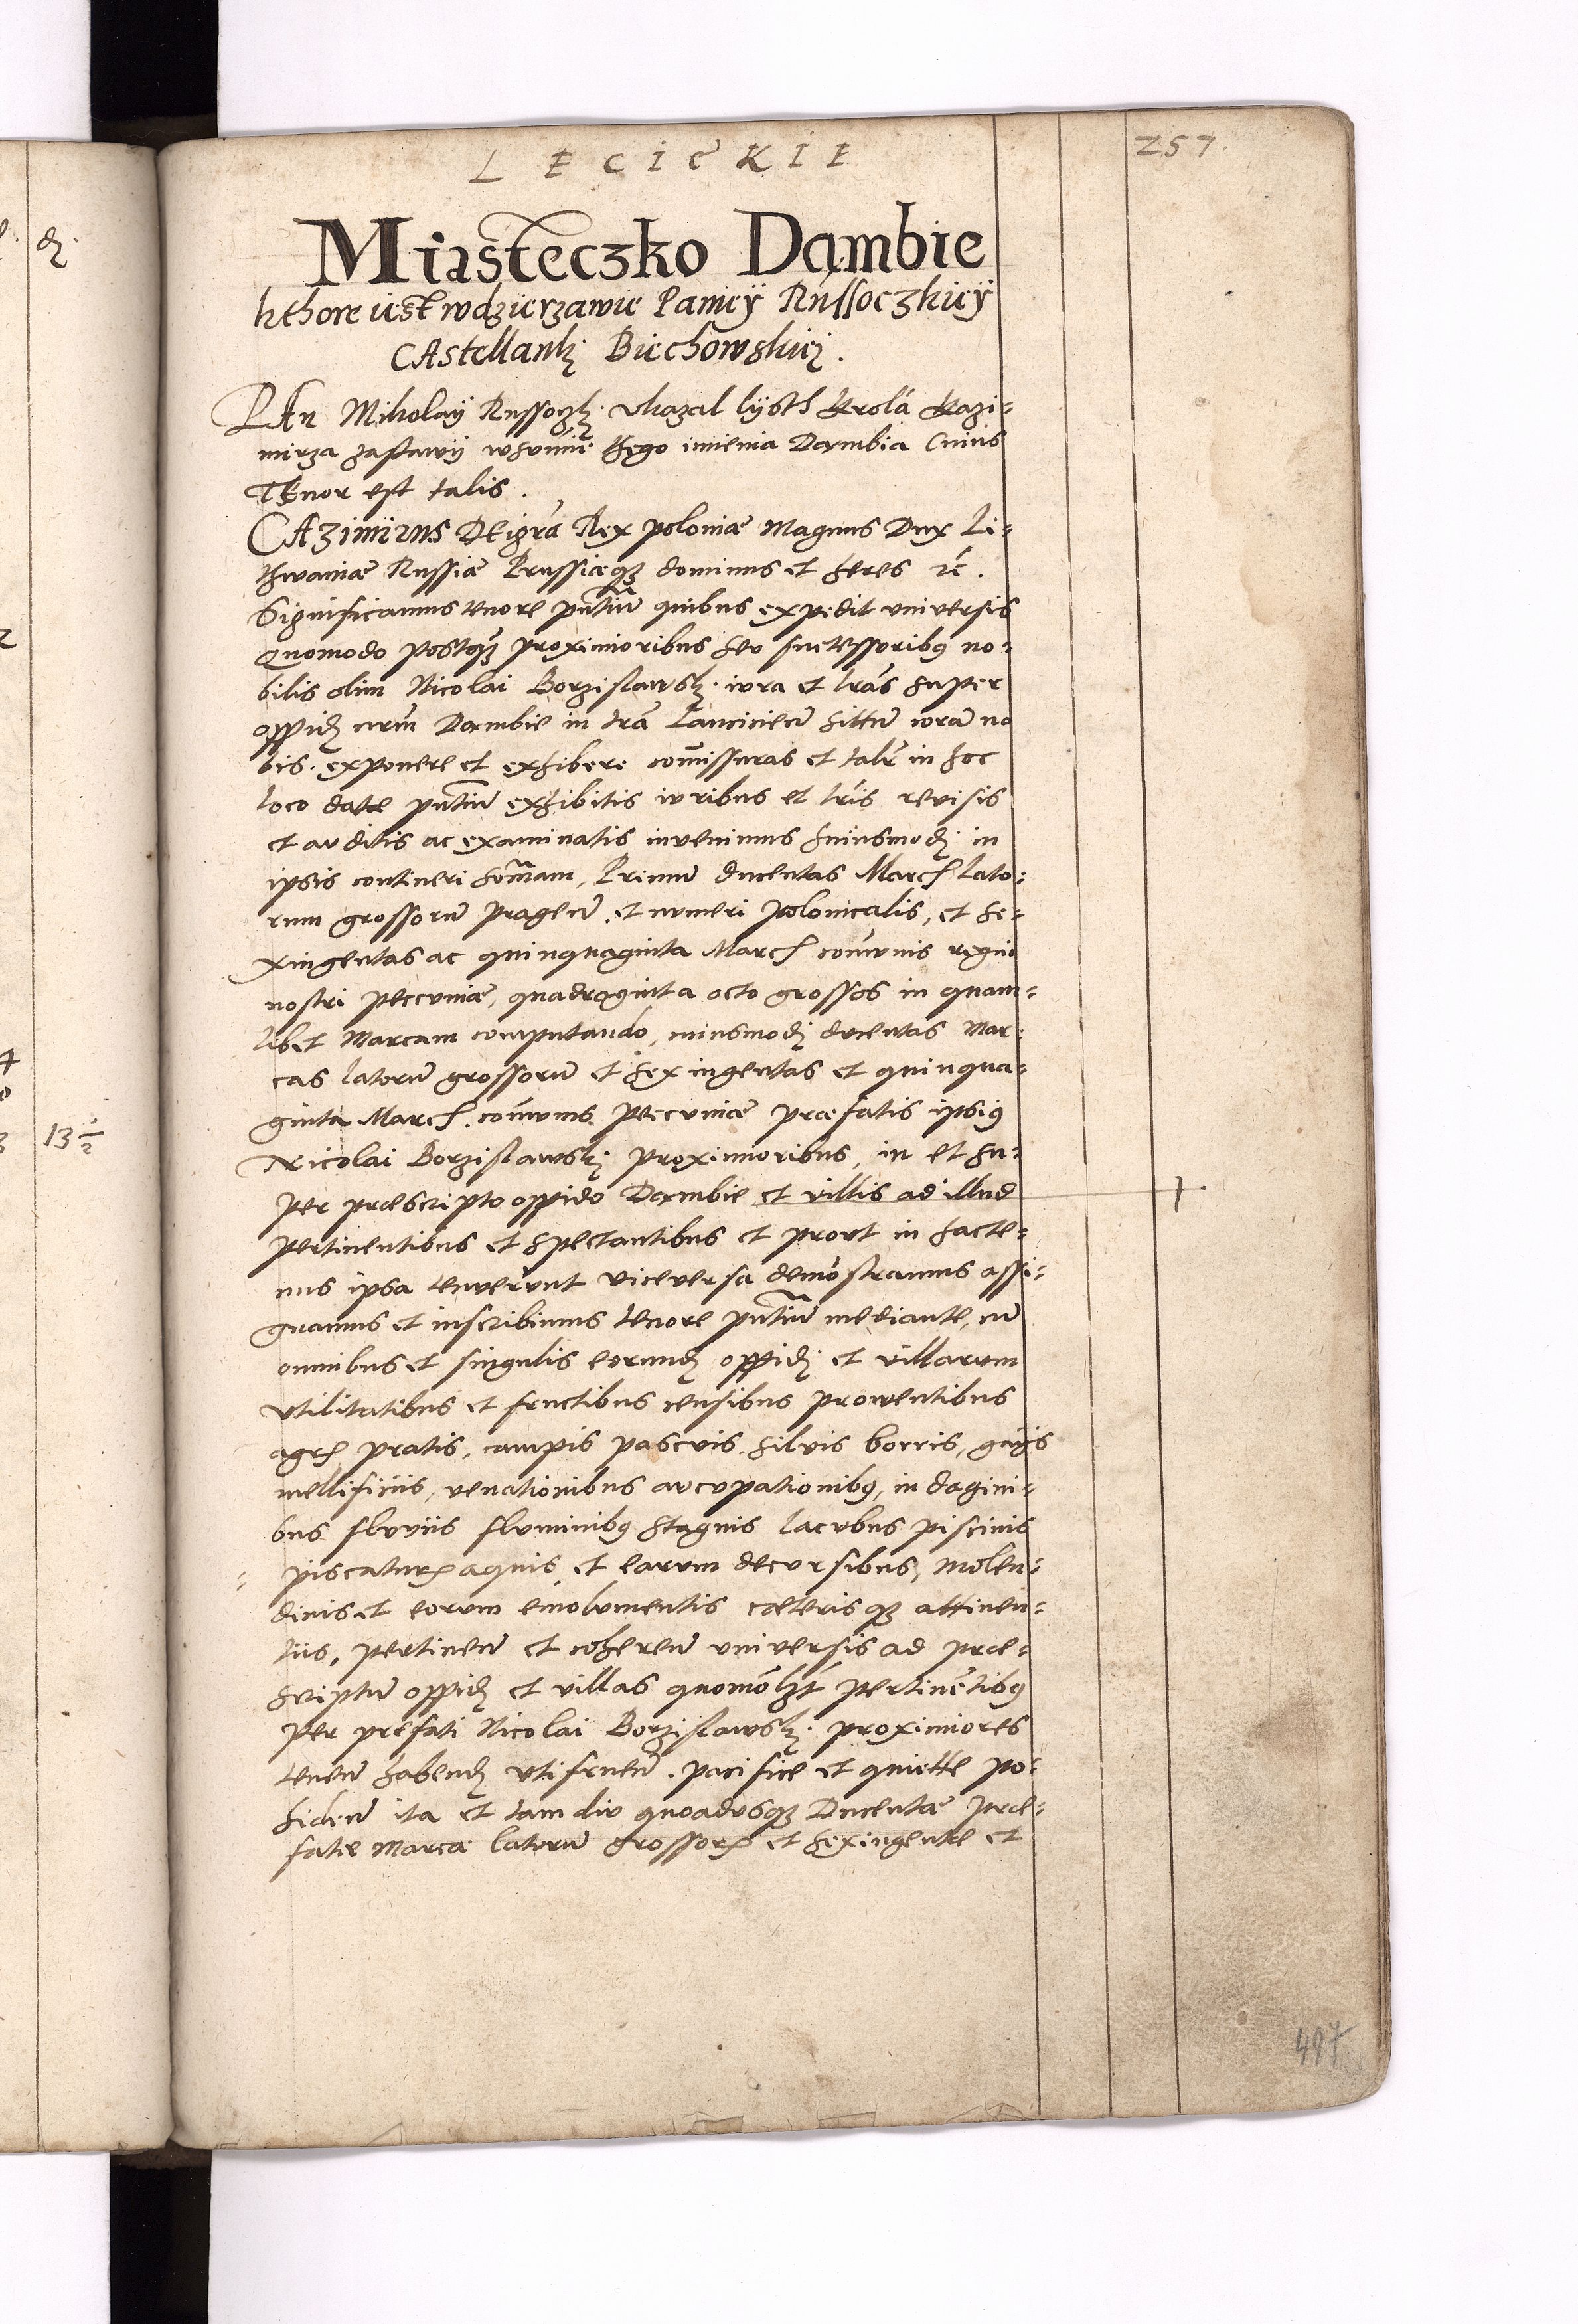 LECICKIE
257.
Miasteczko Dambie
kthore iest wdzierzawie Paniey Russoczkiey
CAstellanki Biechowskiej.
PAn Mikolaÿ Russoczki ukazal lÿsth Krolá Kazi=
mirza zastawÿ wsumie thego imienia Dambia Cuius
TEnor est talis.
CAzimirus DEi grã Rex poloniæ Magnus Dux Li=
thwaniæ Russiæ Prussiæq3 dominus et heres rc̃.
Significamus tenore pñtiũ quibus expedit universis
Quomodo postq̃3 proximioribus seu successoribq no=
bilis olim Nicolai Borzislawski iura et lrãs super
oppid nrũm Dambie in trã Lanciciens sittũ corã no
bis. exponere et exhibere comissuras et talr in hoc
loco datæ pñtiũ exhibitis iuribus et lrĩs revisis
et auditis ac examinatis invenimus huiusmodj in
ipsis contineri som̃am, Primũ ducentas March lato=
rum grossorũ pragen̄. et numeri polonicalis, et se=
xingentas ac quinquaginta March com̃unis regni
nostri peccuniæ, quadraginta octo grossos in quam=
libet Marcam computando, cuiusmodj ducentas Mar=
cas latorũ grossorũ et sexingentas et quinqua=
ginta March. com̃unis pecuniæ præfatis ipsiq
Nicolai Borzislawskj proximioribus, in et su=
per præscripto oppido Dambie et villis ad illud
pertinentibus et spectantibus et prout in hacte=
nus ipsa tenuerunt viceversa demõstramus assi=
gnamus et inscribimus tenore pñtiũ mediante, cũ
omnibus et singulis eorund oppidj et villarum
utilitatibus et fructibus censibus proventibus
agrh pratis, campis pascuis, silvis borris, gays
mellificiis, venationibus aucupationibq, in dagini=
bus fluviis fluminibq stagnis lacubus piscinis
piscaturh aquis et earum decursibus, molen=
dinis et eorum emolumentis cæterisq3 attinen=
tiis, pertinen̄ et coheren̄ universis ad præ=
scriptũ oppid et villas quomõlzt pertinẽtibq
Per prefati Nicolai Borzislawski proximiores
tenen̄ habend uti fruen̄. pacifice et quiette po=
siden̄ ita et tam diu quoadusq3 Ducentæ præ=
fatæ Marcæ latorũ grossorh et sexingentæ et
13 1/2
497